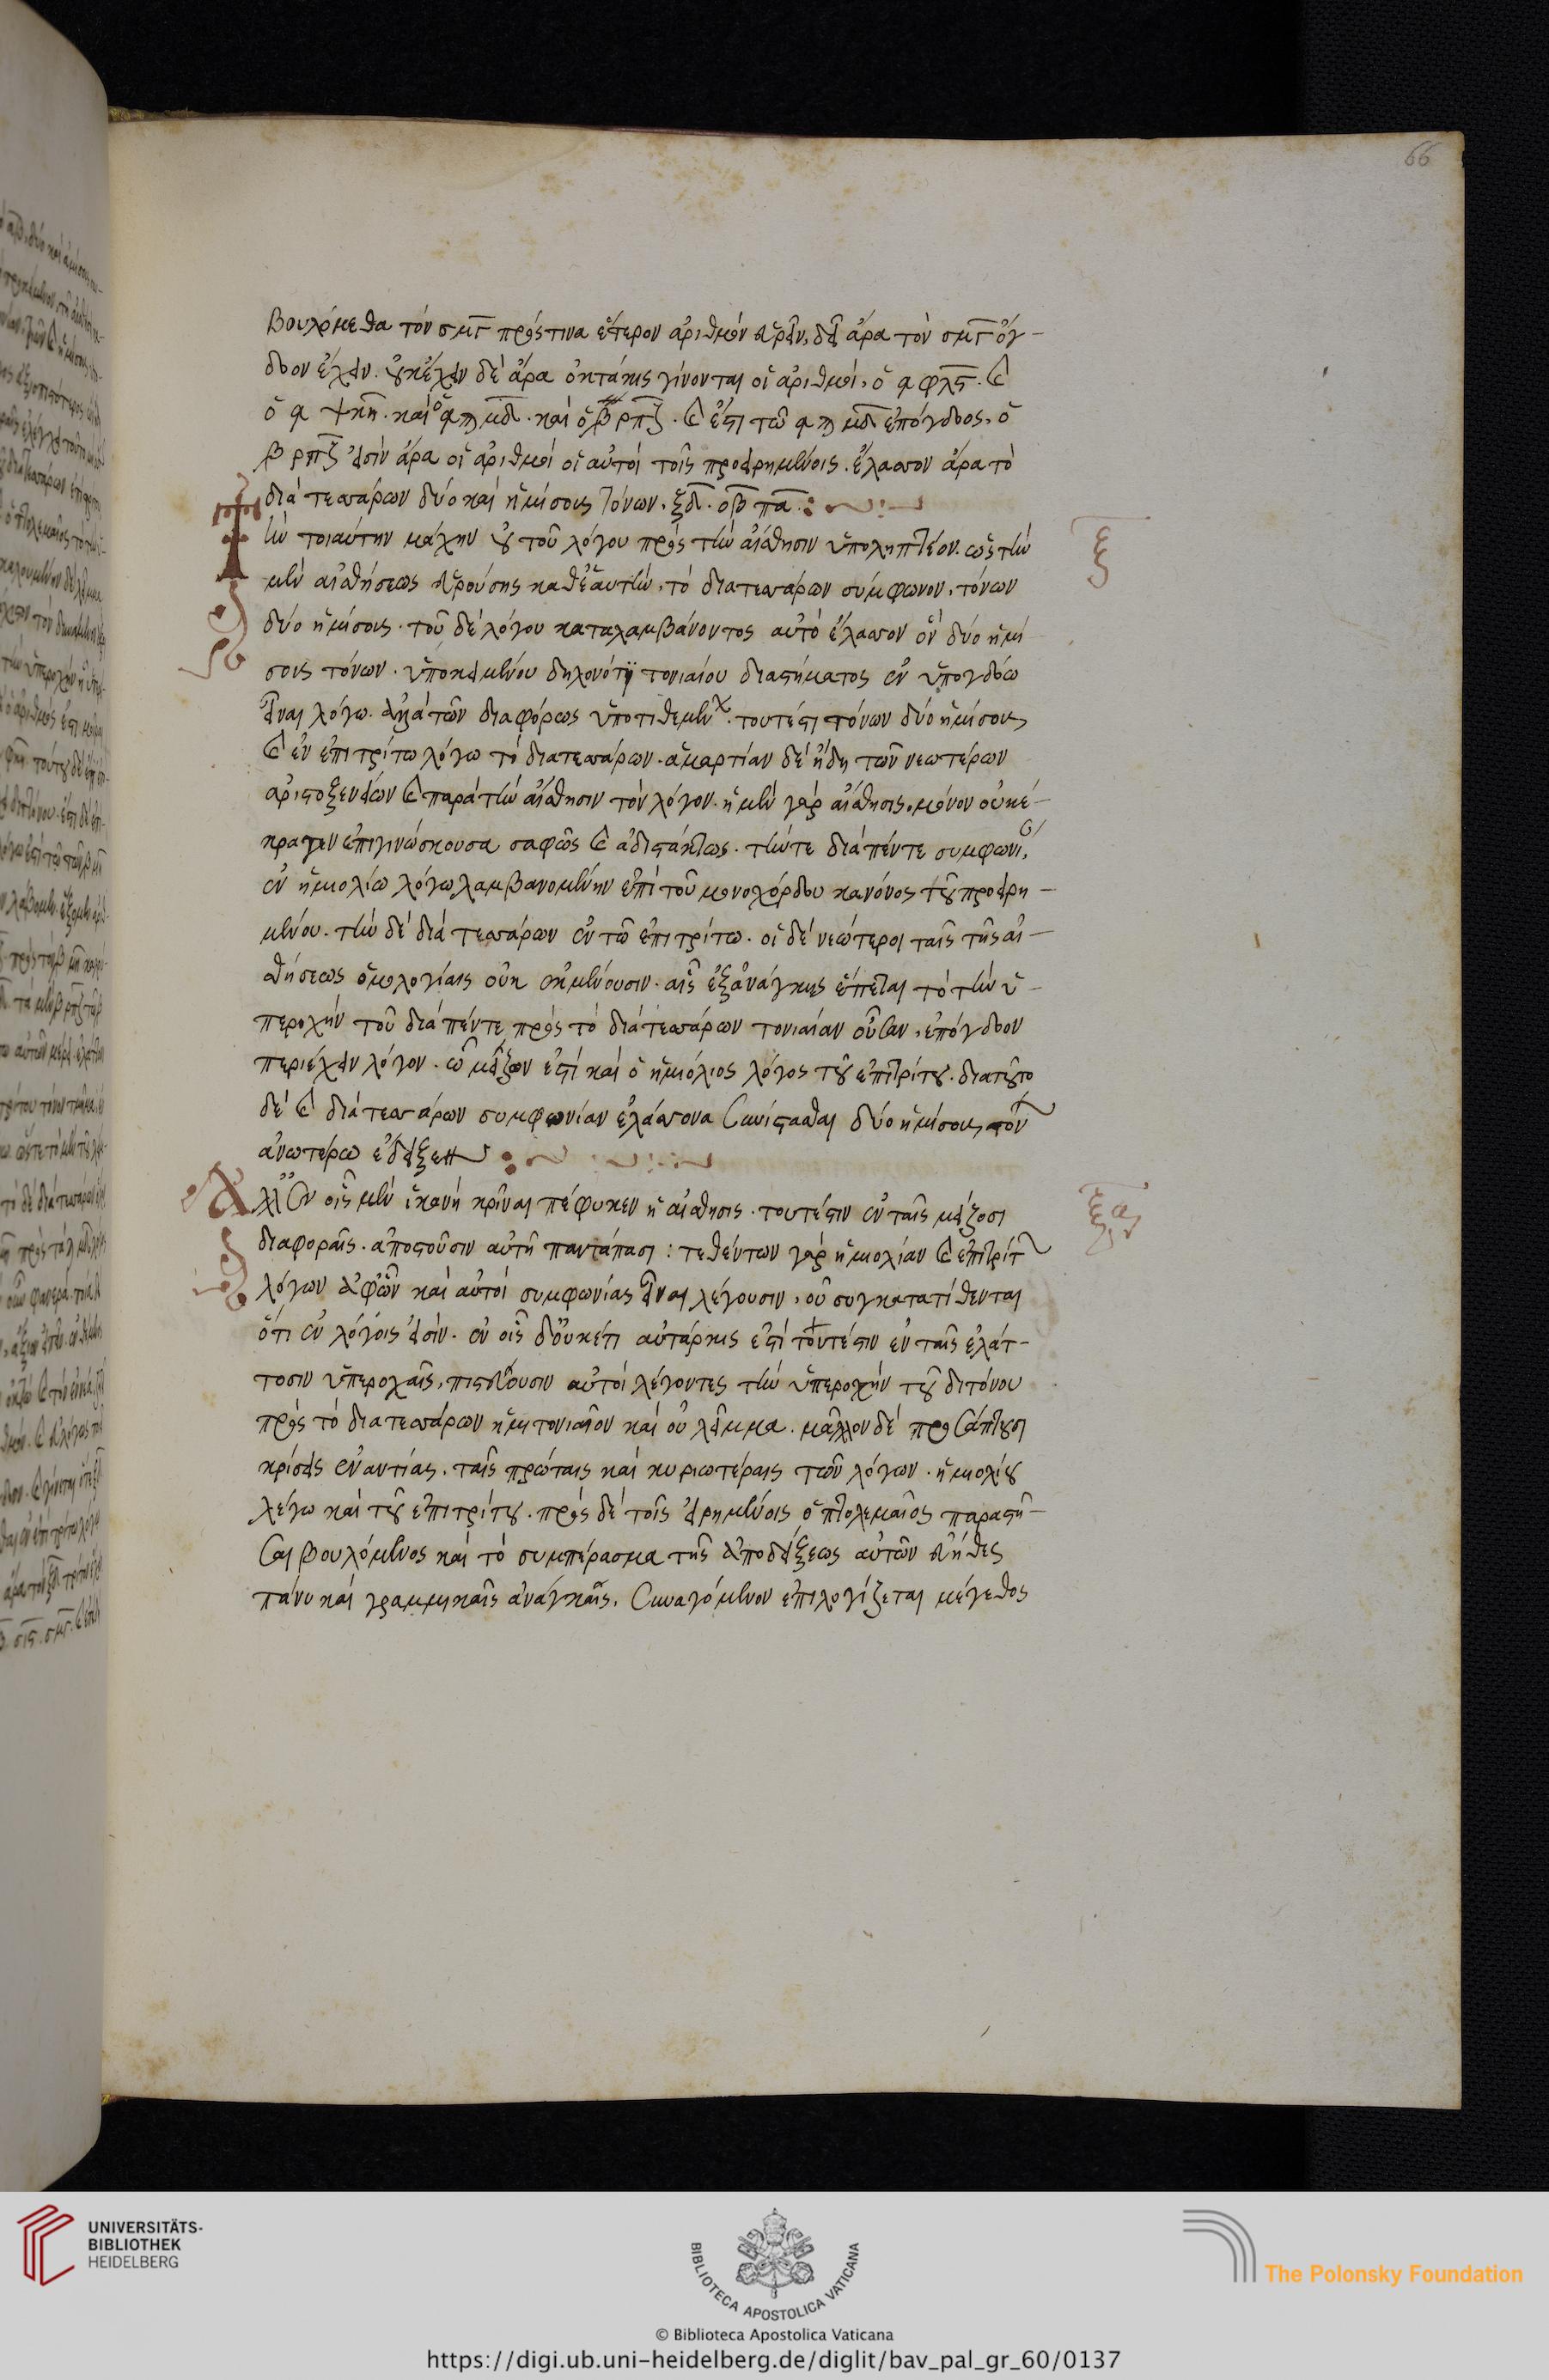 66
βουλόμεθα τόν σμγ πρός τινα ἕτερον ἀριθμόν εὑρεῖν, δεῖ ἄρα τόν σμγ ὄγ-
δοον ἔχειν. οὐκ ἔχειν δέ ἄρα ὀκτάκις γίνονται οἱ ἀριθμοί, ὁ α φλϛ. καὶ
ὁ α ψκη. καί ὁ α ϡ μδ. καί ὁ β ρπζ. καὶ ἔστι τοῦ α ϡ μδ ἐπόγδοος, ὁ
β ρπζ εἰσίν ἄρα οἱ ἀριθμοί οἱ αὐτοί τοῖς προειρημένοις. ἔλασσον ἄρα τό
διά τεσσάρων δύο καί ἡμίσους τόνων. ξδ. οβ πα :
Τὴν τοιαύτην μάχην οὐ τοῦ λόγου πρός τήν αἴσθησιν ὑποληπτέον. ὡς τήν ξ
μέν αἰσθήσεως εὑρούσης καθ' ἑαυτήν, τό διατεσσάρων σύμφωνον, τόνων
δύο ἡμίσους. τοῦ δέ λόγου καταλαμβάνοντος αὐτό ἔλασσον ὄν δύο ἡμί
σους τόνων. ὑποκειμένου δηλονότι τονιαίου διαστήματος ἐν ὑπογδόω
εἶναι λόγω. ἀλλά τῶν διαφόρως ὑποτιθεμένων. τουτέστι τόνων δύο ἡμίσους
καὶ ἐν ἐπιτρίτω λόγω τό διατεσσάρων. ἁμαρτίαν δέ ἤδη τῶν νεωτέρων
ἀριστοξενείων καὶ παρά τήν αἴσθησιν τόν λόγον. ἡ μέν γάρ αἴσθησις, μόνον οὐ κέ-
κραγεν ἐπιγινώσκουσα σαφῶς καὶ ἀδιστάκτως. τήν τε διά πέντε συμφωνίαν,
ἐν ἡμιολίω λόγω λαμβανομένην ἐπί τοῦ μονοχόρδου κανόνος τοῦ προειρη-
μένου. τήν δέ διά τεσσάρων ἐν τῶ ἐπιτρίτω. οἱ δέ νεώτεροι ταῖς τῆς αἰ-
σθήσεως ὁμολογίαις οὐκ ἐμμένουσιν. αἷς ἐξ ἀνάγκης ἕπεται τό τήν ὑ-
περοχήν τοῦ διά πέντε πρός τό διά τεσσάρων τονιαίαν οὖσαν, ἐπόγδοον
περιέχειν λόγον. ὧ μείζων ἐστί καί ὁ ἡμιόλιος λόγος τοῦ ἐπιτρίτου. διατοῦτο
δέ καὶ διά τεσσάρων συμφωνίαν ἐλάσσονα συνίστασθαι δύο ἡμίσους τόνων
ἀνωτέρω ἐδείξεν :
Ἀλλ' ἐν οἷς μέν ἱκανή κρῖναι πέφυκεν ἡ αἴσθησις. τουτέστιν ἐν ταῖς μείζοσι ξα
διαφοραῖς. ἀπιστοῦσιν αὐτῆ παντάπασι : τεθέντων γάρ ἡμιολίων καὶ ἐπιτρίτων
λόγων ἀφ' ὧν καί αὐτοί συμφωνίας εἶναι λέγουσιν, οὐ συγκατατίθενται
ὅτι ἐν λόγοις εἰσίν. ἐν οἷς δ' οὐκέτι αὐτάρκης ἐστί τουτέστιν ἐν ταῖς ἐλάτ-
τοσιν ὑπεροχαῖς, πιστεύουσιν αὐτοί λέγοντες τήν ὑπεροχήν τοῦ διτόνου
πρός τό διατεσσάρων ἡμιτονιαῖον καί οὐ λεῖμμα. μᾶλλον δέ προσάπτουσι
κρίσεις ἐναντίας. ταῖς πρώταις καί κυριωτέραις τῶν λόγων. ἡμιολίου
λέγω καί τοῦ ἐπιτρίτου. πρός δέ τοῖς εἰρημένοις ὁ πτολεμαῖος παραστῆ-
σαι βουλόμενος καί τό συμπέρασμα τῆς ἀποδείξεως αὐτῶν εὔηθες
πάνυ καί γραμμικαῖς ἀνάγκαις. συναγόμενον ἐπιλογίζεται μέγεθος
UNIVERSITÄTS-
BIBLIOTHEK
HEIDELBERG
BIBLIOTECA APOSTOLICA VATICANA
The Polonsky Foundation
© Biblioteca Apostolica Vaticana
https://digi.ub.uni-heidelberg.de/diglit/bav_pal_gr_60/0137